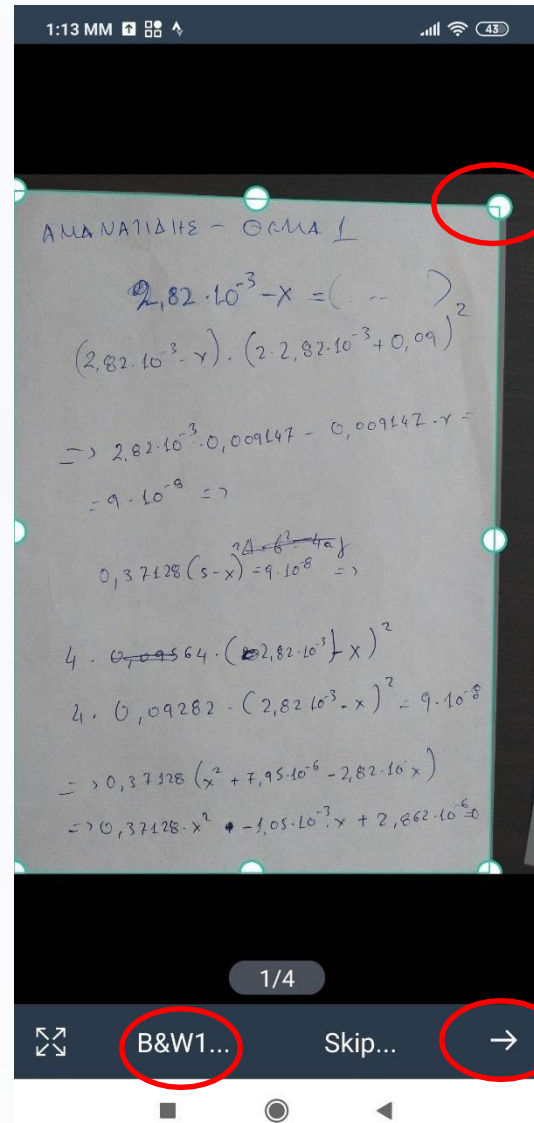 1:13 MM 43
ΑΜΑΝΑΤΙΔΗΣ - ΘΕΜΑ 1
2,82·10⁻³-x = ( -- )
(2,82·10⁻³-x)·(2·2,82·10⁻³+0,09)²
=> 2,82·10⁻³·0,009147 - 0,009147·x =
= 9·10⁻⁸ =>
0,37128(s-x)²=9·10⁻⁸ =>
4 · 64·(2,82·10⁻³-x)²
4· 0,09282·(2,82·10⁻³-x)² = 9·10⁻⁸
=> 0,37128(x²+7,95·10⁻⁶-2,82·10⁻x)
=> 0,37128·x² -1,05·10⁻³·x + 2,862·10⁻⁶=0
1/4
B&W1... Skip... →